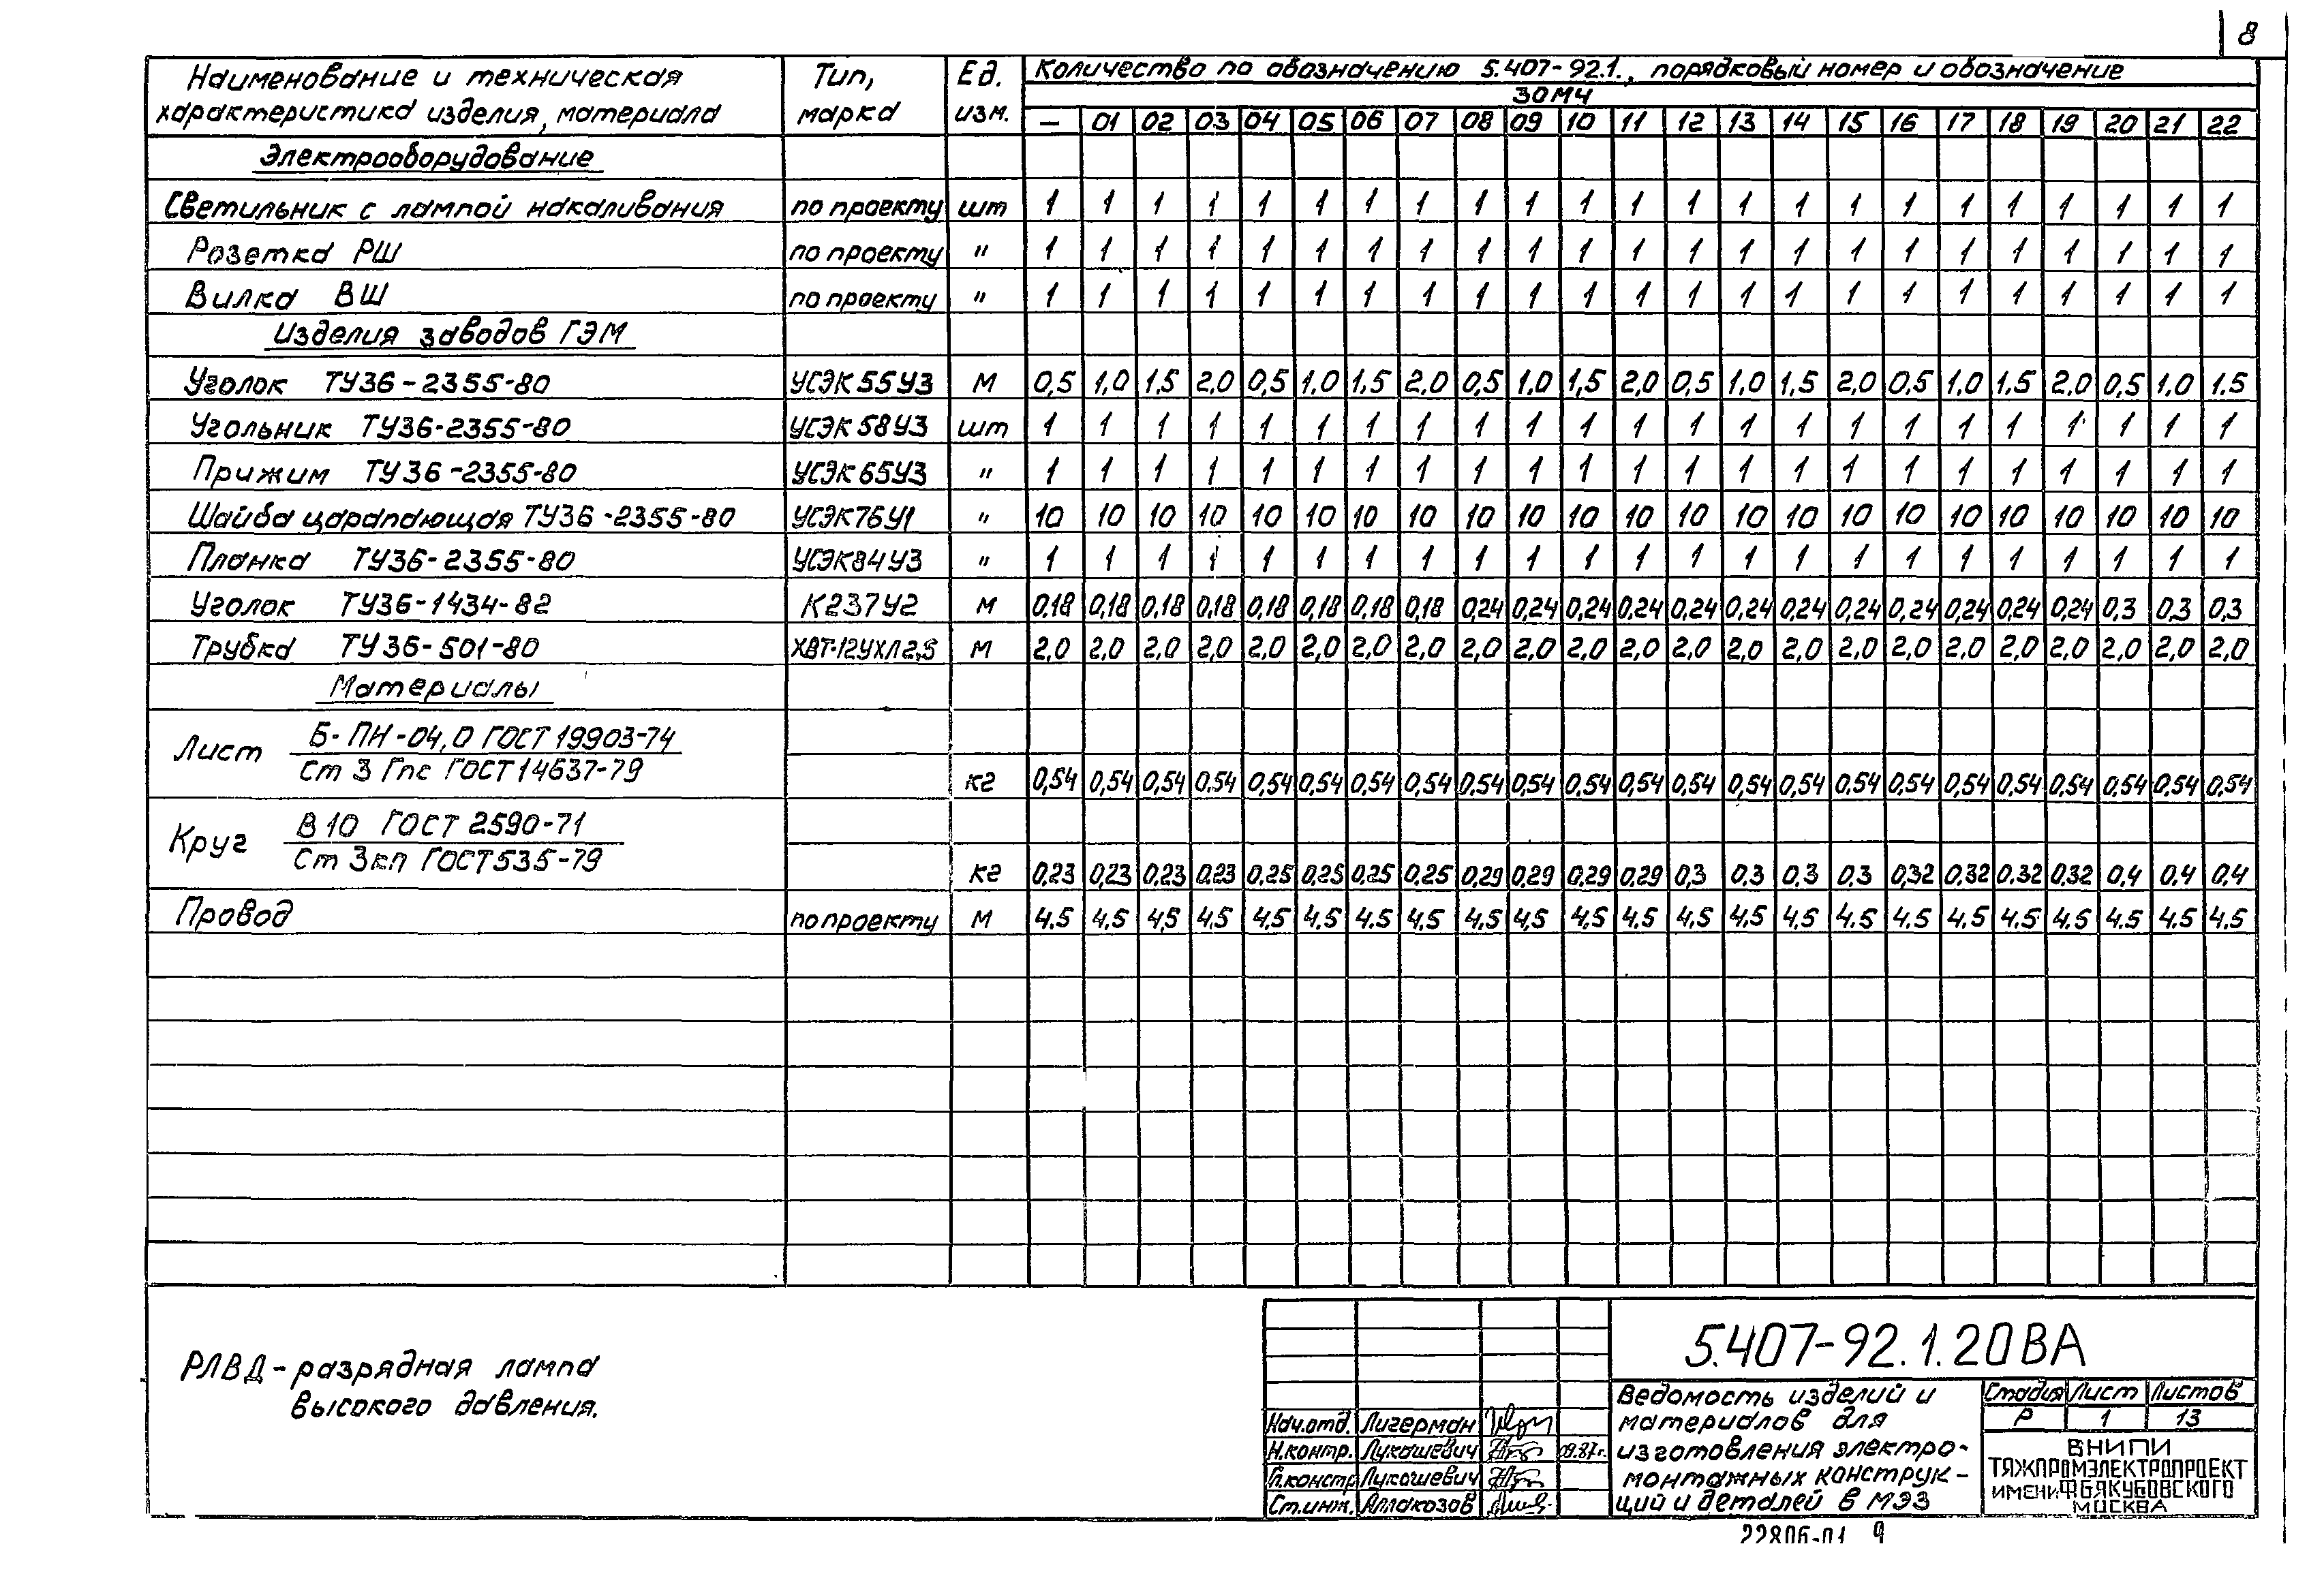 8
Наименование и техническая характеристика изделия, материала | Тип, марка | Ед. изм. | Количество по обозначению 5.407-92.1., порядковый номер и обозначение
30МЧ
— 01 02 03 04 05 06 07 08 09 10 11 12 13 14 15 16 17 18 19 20 21 22
Электрооборудование
Светильник с лампой накаливания по проекту шт 1 1 1 1 1 1 1 1 1 1 1 1 1 1 1 1 1 1 1 1 1 1 1
Розетка РШ по проекту " 1 1 1 1 1 1 1 1 1 1 1 1 1 1 1 1 1 1 1 1 1 1 1
Вилка ВШ по проекту " 1 1 1 1 1 1 1 1 1 1 1 1 1 1 1 1 1 1 1 1 1 1 1
Изделия заводов ГЭМ
Уголок ТУ36-2355-80 УСЭК55У3 М 0,5 1,0 1,5 2,0 0,5 1,0 1,5 2,0 0,5 1,0 1,5 2,0 0,5 1,0 1,5 2,0 0,5 1,0 1,5 2,0 0,5 1,0 1.5
Угольник ТУ36-2355-80 УСЭК58У3 шт 1 1 1 1 1 1 1 1 1 1 1 1 1 1 1 1 1 1 1 1 1 1 1
Прижим ТУ36-2355-80 УСЭК65У3 " 1 1 1 1 1 1 1 1 1 1 1 1 1 1 1 1 1 1 1 1 1 1 1
Шайба царапающая ТУ36-2355-80 УСЭК76У1 " 10 10 10 10 10 10 10 10 10 10 10 10 10 10 10 10 10 10 10 10 10 10 10
Планка ТУ36-2355-80 УСЭК84У3 " 1 1 1 1 1 1 1 1 1 1 1 1 1 1 1 1 1 1 1 1 1 1 1
Уголок ТУ36-1434-82 К237У2 М 0,18 0,18 0,18 0,18 0,18 0,18 0,18 0,18 0,24 0,24 0,24 0,24 0,24 0,24 0,24 0,24 0,24 0,24 0,24 0,24 0,3 0,3 0,3
Трубка ТУ36-501-80 ХВТ-12УХЛ2,5 М 2,0 2,0 2,0 2,0 2,0 2,0 2,0 2,0 2,0 2,0 2,0 2,0 2,0 2,0 2,0 2,0 2,0 2,0 2,0 2,0 2,0 2,0 2,0
Материалы
Лист Б-ПН-04,0 ГОСТ 19903-74
Ст 3 Гпс ГОСТ 14637-79 кг 0,54 0,54 0,54 0,54 0,54 0,54 0,54 0,54 0,54 0,54 0,54 0,54 0,54 0,54 0,54 0,54 0,54 0,54 0,54 0,54 0,54 0,54 0,54
Круг В10 ГОСТ 2590-71
Ст 3кп ГОСТ535-79 кг 0,23 0,23 0,23 0,23 0,25 0,25 0,25 0,25 0,29 0,29 0,29 0,29 0,3 0,3 0,3 0,3 0,32 0,32 0,32 0,32 0,4 0,4 0,4
Провод по проекту М 4.5 4.5 4,5 4.5 4,5 4.5 4.5 4.5 4.5 4,5 4.5 4.5 4,5 4.5 4,5 4.5 4.5 4.5 4.5 4.5 4.5 4.5 4.5
РЛВД-разрядная лампа
высокого давления.
5.407-92.1.20ВА
Ведомость изделий и
материалов для
изготовления электро-
монтажных конструк-
ций и деталей в МЭЗ
Стадия Лист Листов
Р 1 13
ВНИПИ
ТЯЖПРОМЭЛЕКТРОПРОЕКТ
ИМЕНИ Ф.Б.ЯКУБОВСКОГО
МОСКВА
Нач.отд. Лигерман
Н.контр. Лукашевич 09.87г.
Гл.констр Лукашевич
Ст.инж. Аллакозов
22806-01 9